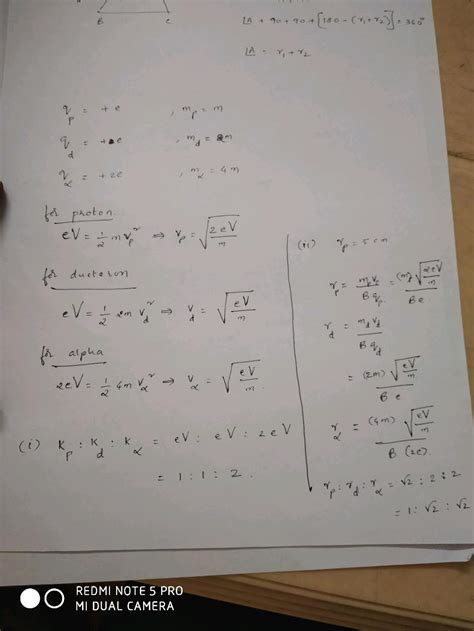 B C
∠A + 90 + 90 + [180 - (r₁+r₂)] = 360°
∠A = r₁ + r₂
q_p = +e , m_p = m
q_d = +e , m_d = 2m
q_α = +2e , m_α = 4m
for proton
eV = 1/2 m v_p² ⇒ v_p = √(2eV/m)
for deuteron
eV = 1/2 2m v_d² ⇒ v_d = √(eV/m)
for alpha
2eV = 1/2 4m v_α² ⇒ v_α = √(eV/m)
(i) K_p : K_d : K_α = eV : eV : 2eV
= 1 : 1 : 2.
(ii) r_p = 5 cm
r_p = m_p v_p / B q_p = (m) √(2eV/m) / Be
r_d = m_d v_d / B q_d
= (2m) √(eV/m) / B e
r_α = (4m) √(eV/m) / B (2e)
r_p : r_d : r_α = √2 : 2 : 2
= 1 : √2 : √2
REDMI NOTE 5 PRO
MI DUAL CAMERA